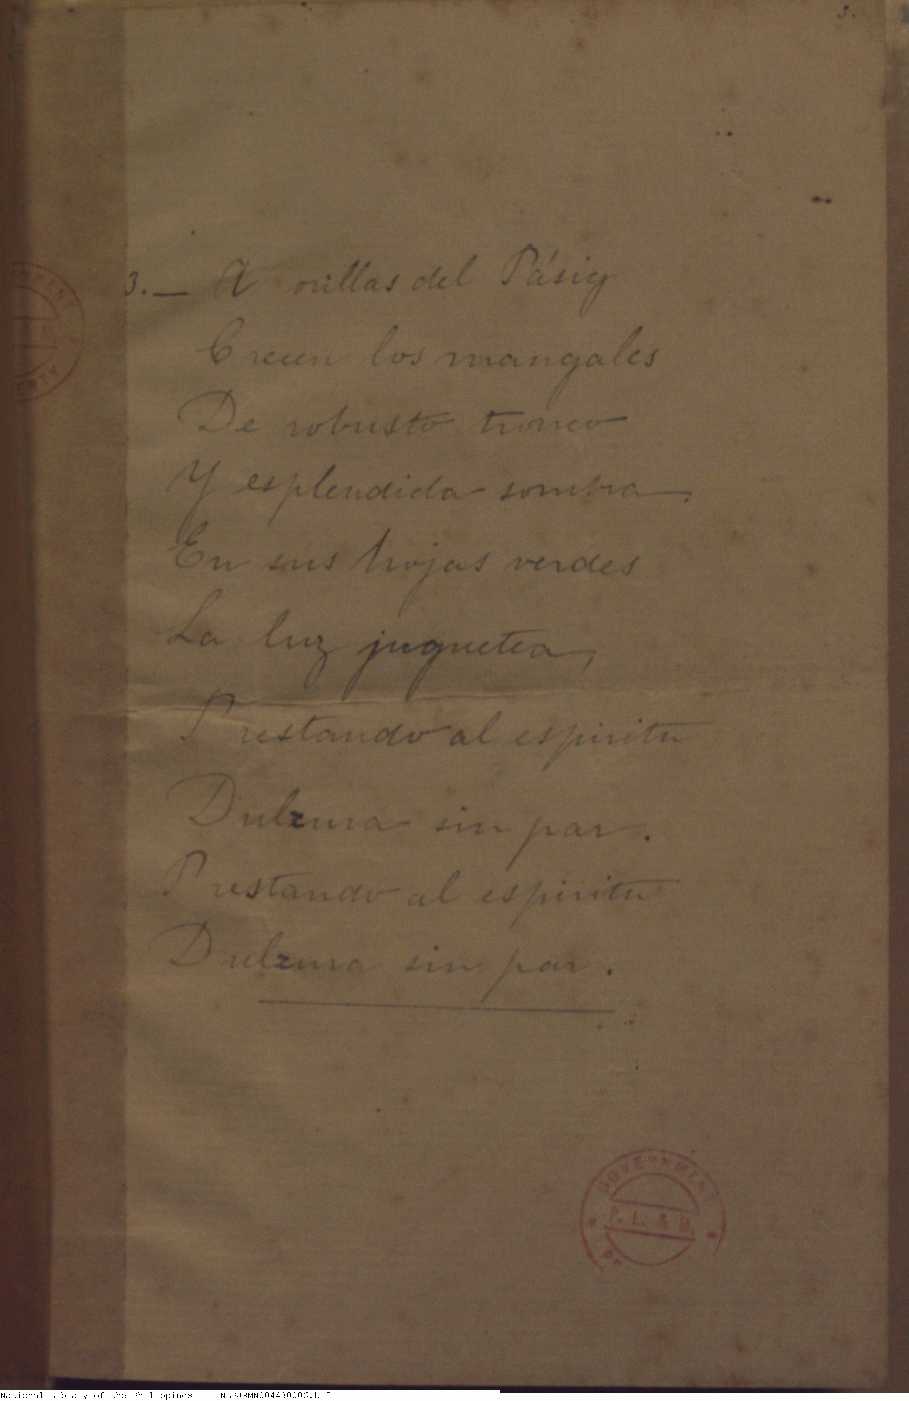 3.
3. — A orillas del Pásig
Crecen los mangales
De robusto tronco
Y esplendida sombra.
En sus hojas verdes
La luz juguetea,
Prestando al espiritu
Dulzura sin par.
Prestando al espiritu
Dulzura sin par.
GOVERNMENT
P. L. & M.
National Library of the Philippines